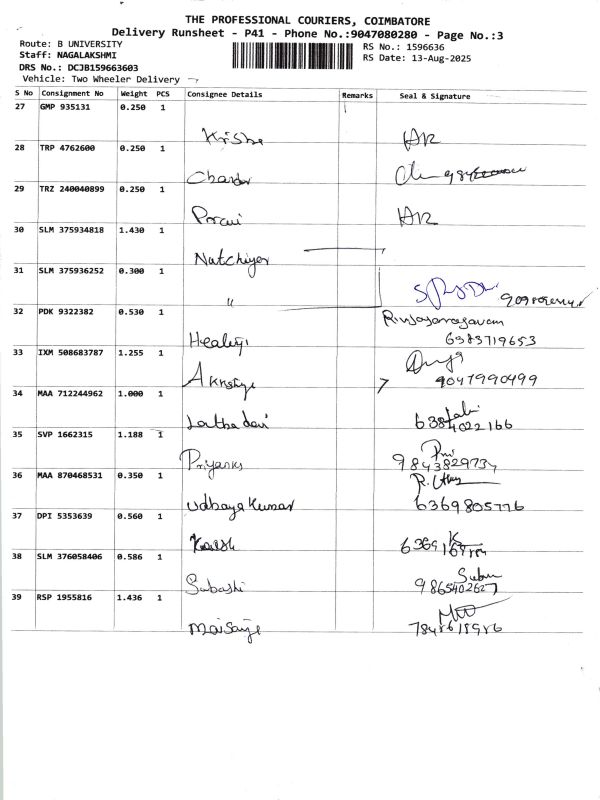 THE PROFESSIONAL COURIERS, COIMBATORE
Delivery Runsheet - P41 - Phone No.:9047080280 - Page No.:3
Route: B UNIVERSITY
Staff: NAGALAKSHMI
DRS No.: DCJB159663603
Vehicle: Two Wheeler Delivery
RS No.: 1596636
RS Date: 13-Aug-2025
S No Consignment No Weight PCS Consignee Details Remarks Seal & Signature
27 GMP 935131 0.250 1
28 TRP 4762600 0.250 1
Chandar
29 TRZ 240040899 0.250 1
30 SLM 375934818 1.430 1
Natchiyar
31 SLM 375936252 0.300 1
"
32 PDK 9322382 0.530 1
6383719653
33 IXM 508683787 1.255 1
9047990499
34 MAA 712244962 1.000 1
Latha devi 6384022166
35 SVP 1662315 1.188 1
Priyanka 9843829734
36 MAA 870468531 0.350 1
Udhaya Kumar 6369805776
37 DPI 5353639 0.560 1
38 SLM 376058406 0.586 1
Subashi 9865402627
39 RSP 1955816 1.436 1